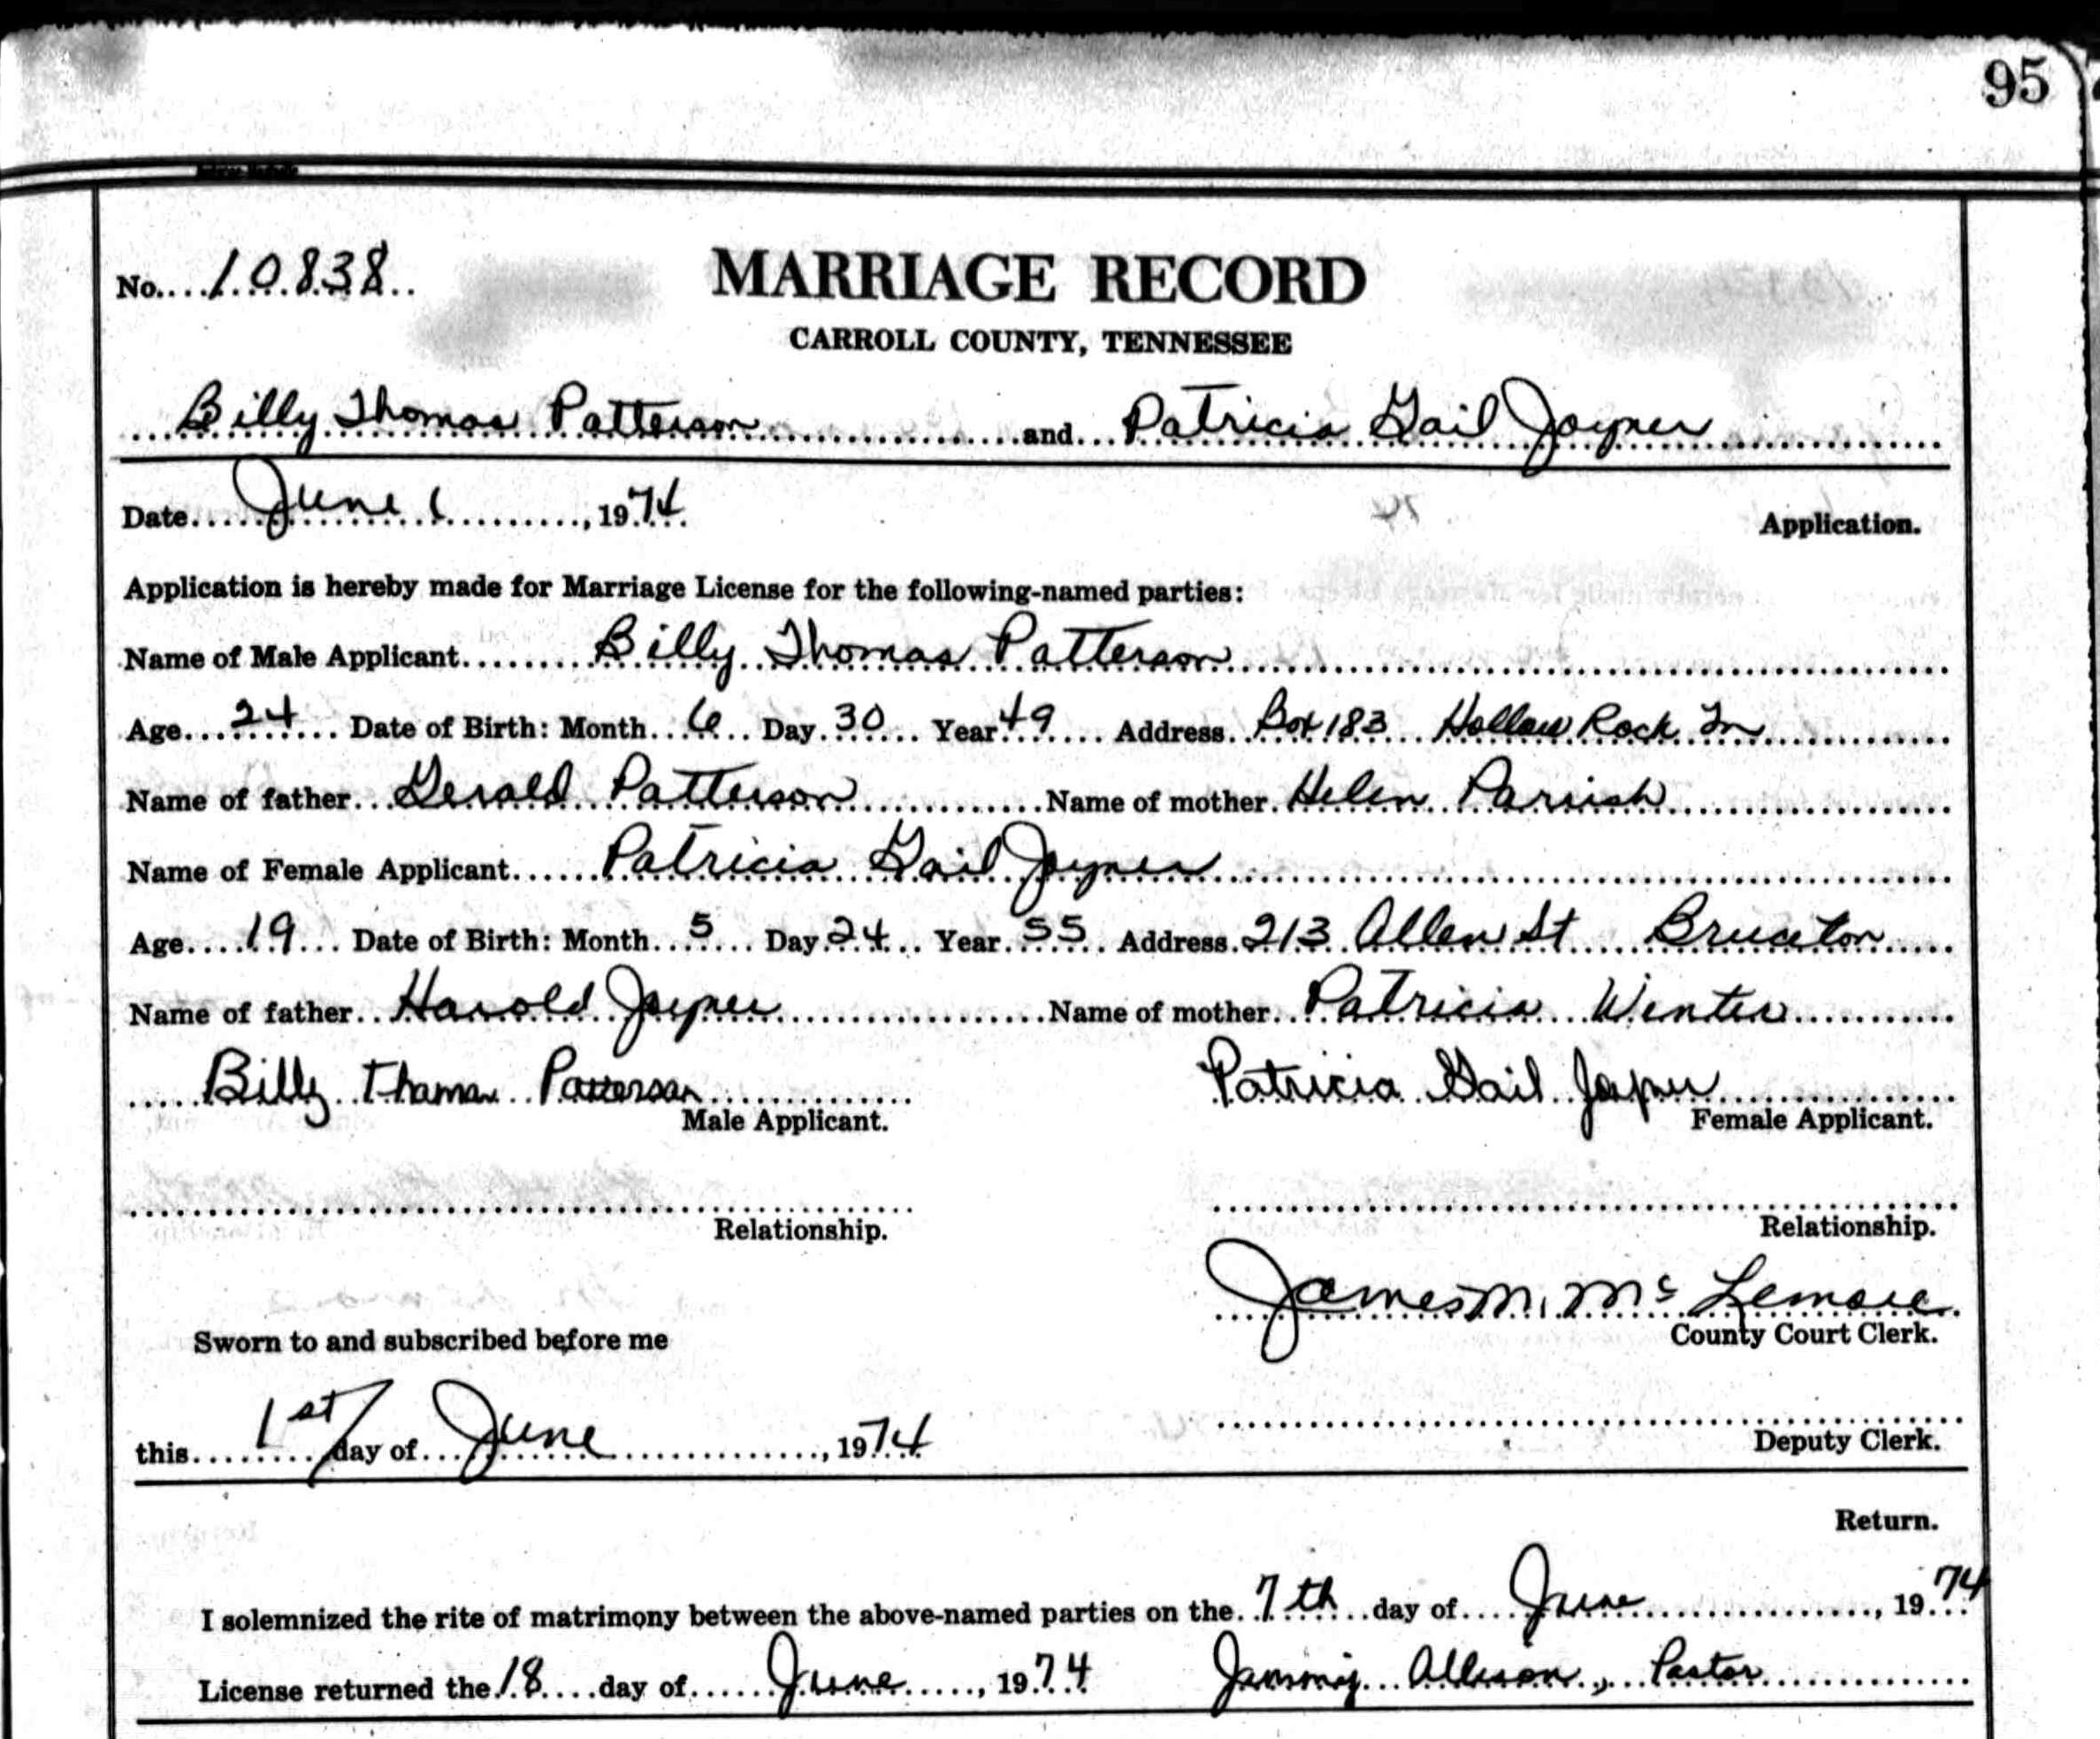 95
No....10838..
MARRIAGE RECORD
CARROLL COUNTY, TENNESSEE
Billy Thomas Patterson and Patricia Gail Joyner
Date June 1, 1974. Application.
Application is hereby made for Marriage License for the following-named parties:
Name of Male Applicant Billy Thomas Patterson
Age 24 Date of Birth: Month 6 Day 30 Year 49 Address Box 183 Hollow Rock Tn
Name of father Gerald Patterson Name of mother Helen Parrish
Name of Female Applicant Patricia Gail Joyner
Age 19 Date of Birth: Month 5 Day 24 Year 55 Address 213 Allen St Bruceton
Name of father Harold Joyner Name of mother Patricia Winter
Billy Thomas Patterson Patricia Gail Joyner
Male Applicant. Female Applicant.
Relationship. Relationship.
James M. Mc Lemore
Sworn to and subscribed before me County Court Clerk.
this 1st day of June, 1974
Deputy Clerk.
Return.
I solemnized the rite of matrimony between the above-named parties on the 7th day of June, 1974
License returned the 18 day of June, 1974 Jammy Allison, Pastor